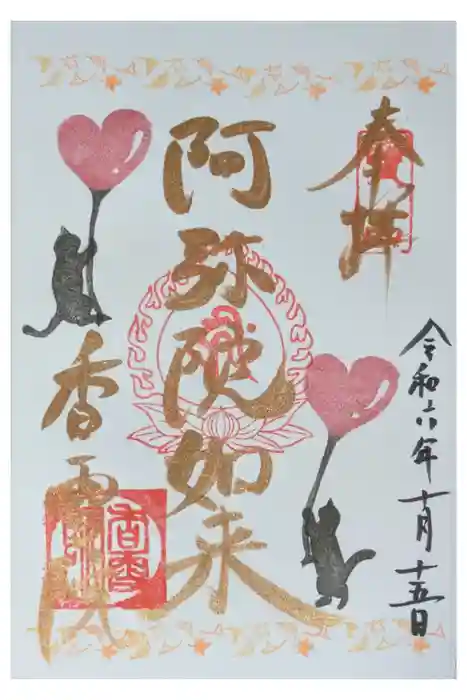 奉拝
阿弥陀如来
香雲院
令和六年十月十五日